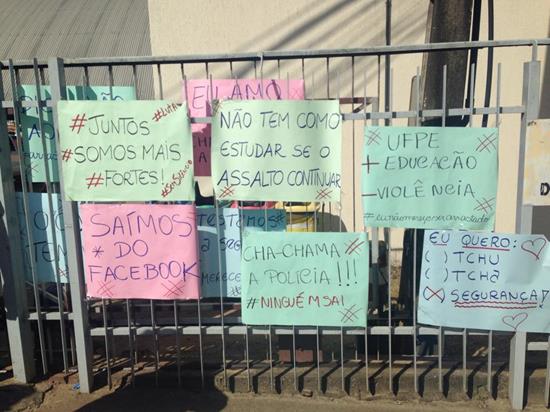 #JUNTOS
#SOMOS MAIS
#FORTES!
#LUTA
NÃO TEM COMO
ESTUDAR SE O
ASSALTO CONTINUAR
UFPE
+ EDUCAÇÃO
- VIOLÊNCIA
SAÍMOS
* DO
FACEBOOK
CHA-CHAMA
A POLICIA!!!
#NINGUÉM SAI
EU QUERO:
( ) TCHU
( ) TCHA
(X) SEGURANÇA!